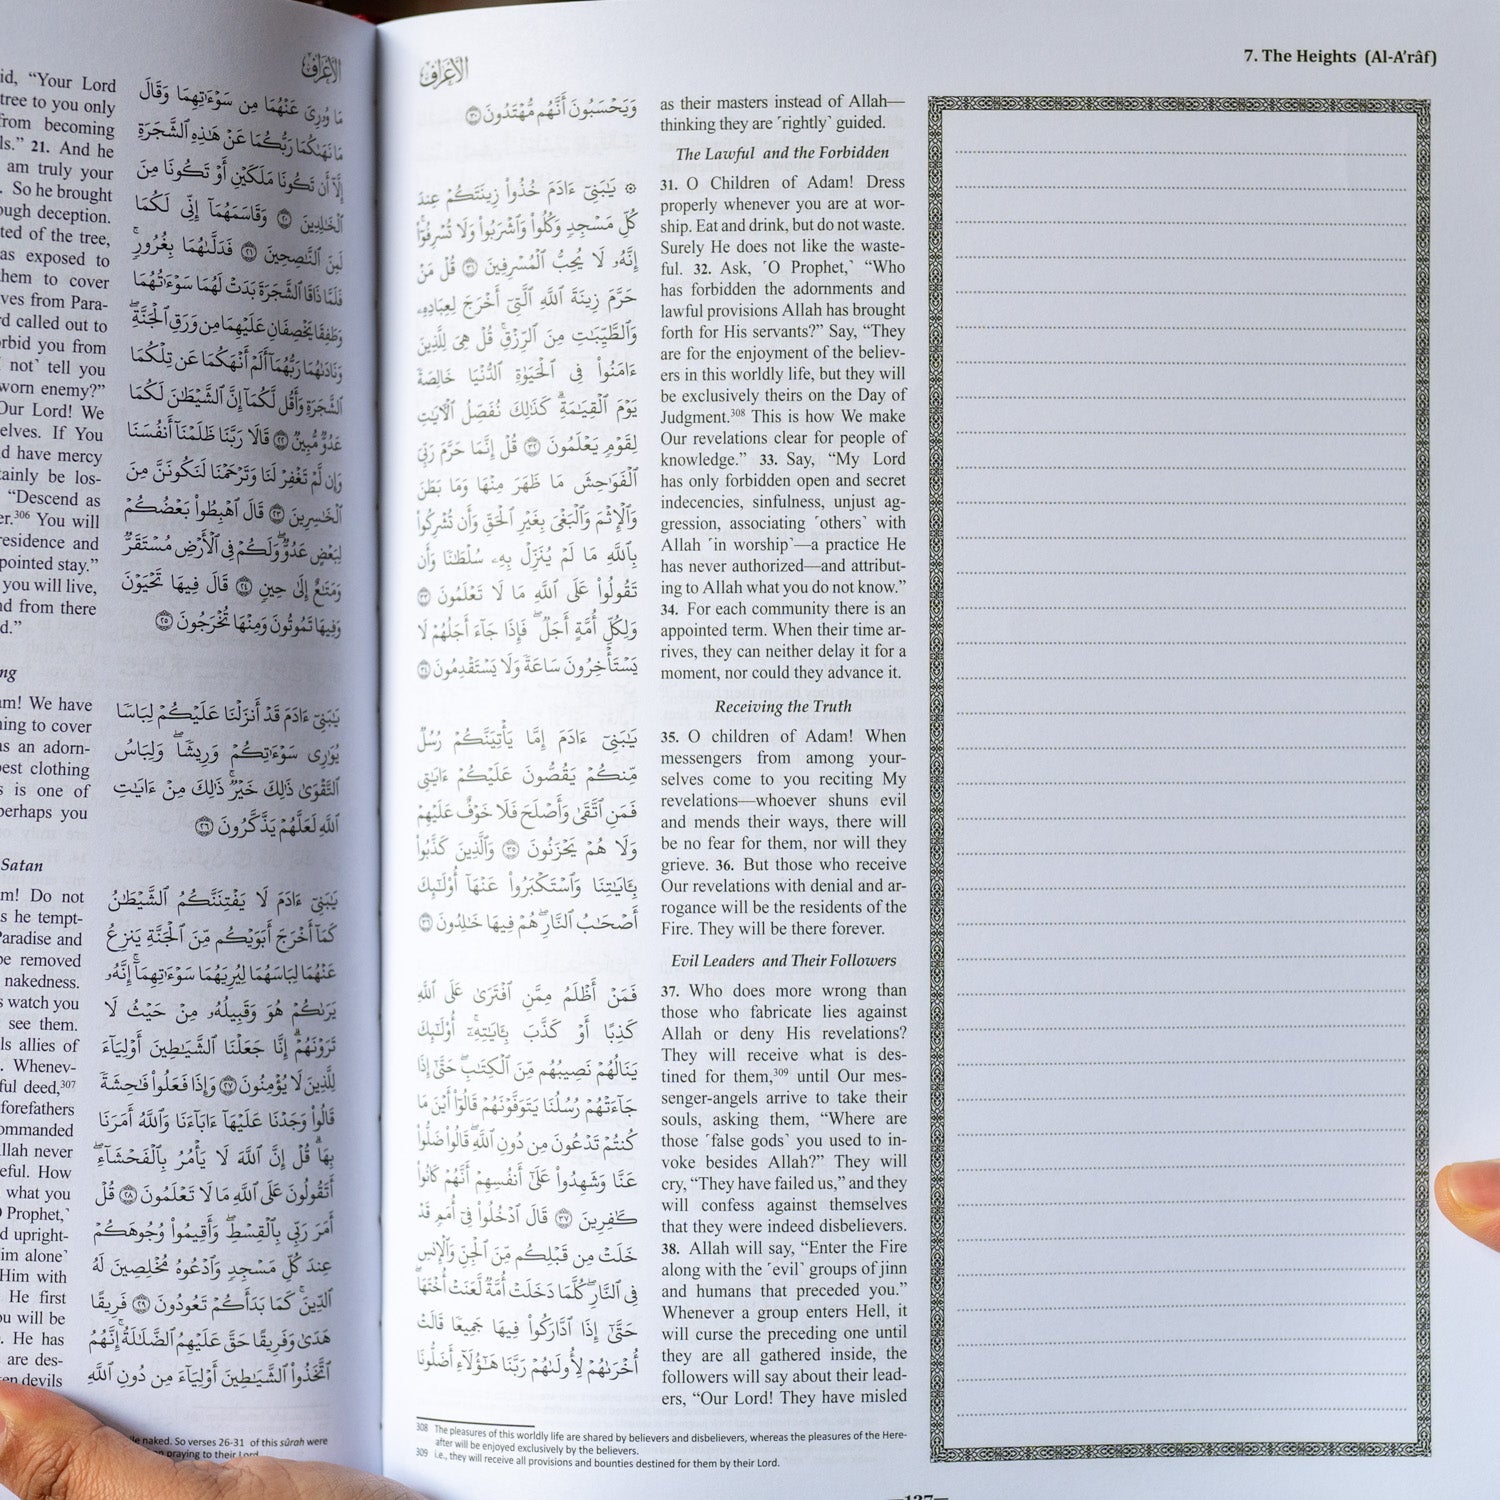 id, “Your Lord
tree to you only
from becoming
ls.” 21. And he
am truly your
. So he brought
ough deception.
ted of the tree,
as exposed to
them to cover
ves from Para-
rd called out to
orbid you from
not˺ tell you
worn enemy?”
Our Lord! We
elves. If You
d have mercy
tainly be los-
“Descend as
er.³⁰⁶ You will
residence and
pointed stay.”
you will live,
nd from there
d.”
ng
am! We have
ning to cover
as an adorn-
best clothing
s is one of
perhaps you
Satan
m! Do not
s he tempt-
Paradise and
be removed
nakedness.
s watch you
see them.
ls allies of
. Whenev-
ful deed,³⁰⁷
forefathers
ommanded
llah never
eful. How
what you
Prophet,˺
d upright-
im alone˺
Him with
He first
u will be
. He has
are des-
en devils
le naked. So verses 26-31 of this sûrah were
praying to their Lord
الأعراف
مَا وُۥرِىَ عَنْهُمَا مِن سَوْءَٰتِهِمَا وَقَالَ
مَا نَهَىٰكُمَا رَبُّكُمَا عَنْ هَـٰذِهِ ٱلشَّجَرَةِ
إِلَّآ أَن تَكُونَا مَلَكَيْنِ أَوْ تَكُونَا مِنَ
ٱلْخَـٰلِدِينَ ٢٠ وَقَاسَمَهُمَآ إِنِّى لَكُمَا
لَمِنَ ٱلنَّـٰصِحِينَ ٢١ فَدَلَّىٰهُمَا بِغُرُورٍ ۚ
فَلَمَّا ذَاقَا ٱلشَّجَرَةَ بَدَتْ لَهُمَا سَوْءَٰتُهُمَا
وَطَفِقَا يَخْصِفَانِ عَلَيْهِمَا مِن وَرَقِ ٱلْجَنَّةِ ۖ
وَنَادَىٰهُمَا رَبُّهُمَآ أَلَمْ أَنْهَكُمَا عَن تِلْكُمَا
ٱلشَّجَرَةِ وَأَقُل لَّكُمَآ إِنَّ ٱلشَّيْطَـٰنَ لَكُمَا
عَدُوٌّ مُّبِينٌ ٢٢ قَالَا رَبَّنَا ظَلَمْنَآ أَنفُسَنَا
وَإِن لَّمْ تَغْفِرْ لَنَا وَتَرْحَمْنَا لَنَكُونَنَّ مِنَ
ٱلْخَـٰسِرِينَ ٢٣ قَالَ ٱهْبِطُوا۟ بَعْضُكُمْ
لِبَعْضٍ عَدُوٌّ ۖ وَلَكُمْ فِى ٱلْأَرْضِ مُسْتَقَرٌّ
وَمَتَـٰعٌ إِلَىٰ حِينٍ ٢٤ قَالَ فِيهَا تَحْيَوْنَ
وَفِيهَا تَمُوتُونَ وَمِنْهَا تُخْرَجُونَ ٢٥
يَـٰبَنِىٓ ءَادَمَ قَدْ أَنزَلْنَا عَلَيْكُمْ لِبَاسًا
يُوَٰرِى سَوْءَٰتِكُمْ وَرِيشًا ۖ وَلِبَاسُ
ٱلتَّقْوَىٰ ذَٰلِكَ خَيْرٌ ۚ ذَٰلِكَ مِنْ ءَايَـٰتِ
ٱللَّهِ لَعَلَّهُمْ يَذَّكَّرُونَ ٢٦
يَـٰبَنِىٓ ءَادَمَ لَا يَفْتِنَنَّكُمُ ٱلشَّيْطَـٰنُ
كَمَآ أَخْرَجَ أَبَوَيْكُم مِّنَ ٱلْجَنَّةِ يَنزِعُ
عَنْهُمَا لِبَاسَهُمَا لِيُرِيَهُمَا سَوْءَٰتِهِمَآ ۗ إِنَّهُۥ
يَرَىٰكُمْ هُوَ وَقَبِيلُهُۥ مِنْ حَيْثُ لَا
تَرَوْنَهُمْ ۗ إِنَّا جَعَلْنَا ٱلشَّيَـٰطِينَ أَوْلِيَآءَ
لِلَّذِينَ لَا يُؤْمِنُونَ ٢٧ وَإِذَا فَعَلُوا۟ فَـٰحِشَةً
قَالُوا۟ وَجَدْنَا عَلَيْهَآ ءَابَآءَنَا وَٱللَّهُ أَمَرَنَا
بِهَا ۗ قُلْ إِنَّ ٱللَّهَ لَا يَأْمُرُ بِٱلْفَحْشَآءِ ۖ
أَتَقُولُونَ عَلَى ٱللَّهِ مَا لَا تَعْلَمُونَ ٢٨ قُلْ
أَمَرَ رَبِّى بِٱلْقِسْطِ ۖ وَأَقِيمُوا۟ وُجُوهَكُمْ
عِندَ كُلِّ مَسْجِدٍ وَٱدْعُوهُ مُخْلِصِينَ لَهُ
ٱلدِّينَ ۚ كَمَا بَدَأَكُمْ تَعُودُونَ ٢٩ فَرِيقًا
هَدَىٰ وَفَرِيقًا حَقَّ عَلَيْهِمُ ٱلضَّلَـٰلَةُ ۗ إِنَّهُمُ
ٱتَّخَذُوا۟ ٱلشَّيَـٰطِينَ أَوْلِيَآءَ مِن دُونِ ٱللَّهِ
الأعراف
7. The Heights (Al-A’râf)
وَيَحْسَبُونَ أَنَّهُم مُّهْتَدُونَ ٣٠
۞ يَـٰبَنِىٓ ءَادَمَ خُذُوا۟ زِينَتَكُمْ عِندَ
كُلِّ مَسْجِدٍ وَكُلُوا۟ وَٱشْرَبُوا۟ وَلَا تُسْرِفُوٓا۟ ۚ
إِنَّهُۥ لَا يُحِبُّ ٱلْمُسْرِفِينَ ٣١ قُلْ مَنْ
حَرَّمَ زِينَةَ ٱللَّهِ ٱلَّتِىٓ أَخْرَجَ لِعِبَادِهِۦ
وَٱلطَّيِّبَـٰتِ مِنَ ٱلرِّزْقِ ۚ قُلْ هِىَ لِلَّذِينَ
ءَامَنُوا۟ فِى ٱلْحَيَوٰةِ ٱلدُّنْيَا خَالِصَةً
يَوْمَ ٱلْقِيَـٰمَةِ ۗ كَذَٰلِكَ نُفَصِّلُ ٱلْـَٔايَـٰتِ
لِقَوْمٍ يَعْلَمُونَ ٣٢ قُلْ إِنَّمَا حَرَّمَ رَبِّىَ
ٱلْفَوَٰحِشَ مَا ظَهَرَ مِنْهَا وَمَا بَطَنَ
وَٱلْإِثْمَ وَٱلْبَغْىَ بِغَيْرِ ٱلْحَقِّ وَأَن تُشْرِكُوا۟
بِٱللَّهِ مَا لَمْ يُنَزِّلْ بِهِۦ سُلْطَـٰنًا وَأَن
تَقُولُوا۟ عَلَى ٱللَّهِ مَا لَا تَعْلَمُونَ ٣٣
وَلِكُلِّ أُمَّةٍ أَجَلٌ ۖ فَإِذَا جَآءَ أَجَلُهُمْ لَا
يَسْتَأْخِرُونَ سَاعَةً وَلَا يَسْتَقْدِمُونَ ٣٤
يَـٰبَنِىٓ ءَادَمَ إِمَّا يَأْتِيَنَّكُمْ رُسُلٌ
مِّنكُمْ يَقُصُّونَ عَلَيْكُمْ ءَايَـٰتِى
فَمَنِ ٱتَّقَىٰ وَأَصْلَحَ فَلَا خَوْفٌ عَلَيْهِمْ
وَلَا هُمْ يَحْزَنُونَ ٣٥ وَٱلَّذِينَ كَذَّبُوا۟
بِـَٔايَـٰتِنَا وَٱسْتَكْبَرُوا۟ عَنْهَآ أُو۟لَـٰٓئِكَ
أَصْحَـٰبُ ٱلنَّارِ ۖ هُمْ فِيهَا خَـٰلِدُونَ ٣٦
فَمَنْ أَظْلَمُ مِمَّنِ ٱفْتَرَىٰ عَلَى ٱللَّهِ
كَذِبًا أَوْ كَذَّبَ بِـَٔايَـٰتِهِۦٓ ۚ أُو۟لَـٰٓئِكَ
يَنَالُهُمْ نَصِيبُهُم مِّنَ ٱلْكِتَـٰبِ ۖ حَتَّىٰٓ إِذَا
جَآءَتْهُمْ رُسُلُنَا يَتَوَفَّوْنَهُمْ قَالُوٓا۟ أَيْنَ مَا
كُنتُمْ تَدْعُونَ مِن دُونِ ٱللَّهِ ۖ قَالُوا۟ ضَلُّوا۟
عَنَّا وَشَهِدُوا۟ عَلَىٰٓ أَنفُسِهِمْ أَنَّهُمْ كَانُوا۟
كَـٰفِرِينَ ٣٧ قَالَ ٱدْخُلُوا۟ فِىٓ أُمَمٍ قَدْ
خَلَتْ مِن قَبْلِكُم مِّنَ ٱلْجِنِّ وَٱلْإِنسِ
فِى ٱلنَّارِ ۖ كُلَّمَا دَخَلَتْ أُمَّةٌ لَّعَنَتْ أُخْتَهَا ۖ
حَتَّىٰٓ إِذَا ٱدَّارَكُوا۟ فِيهَا جَمِيعًا قَالَتْ
أُخْرَىٰهُمْ لِأُولَىٰهُمْ رَبَّنَا هَـٰٓؤُلَآءِ أَضَلُّونَا
as their masters instead of Allah—
thinking they are ˹rightly˺ guided.
The Lawful and the Forbidden
31. O Children of Adam! Dress
properly whenever you are at wor-
ship. Eat and drink, but do not waste.
Surely He does not like the waste-
ful. 32. Ask, ˹O Prophet,˺ “Who
has forbidden the adornments and
lawful provisions Allah has brought
forth for His servants?” Say, “They
are for the enjoyment of the believ-
ers in this worldly life, but they will
be exclusively theirs on the Day of
Judgment.³⁰⁸ This is how We make
Our revelations clear for people of
knowledge.” 33. Say, “My Lord
has only forbidden open and secret
indecencies, sinfulness, unjust ag-
gression, associating ˹others˺ with
Allah ˹in worship˺—a practice He
has never authorized—and attribut-
ing to Allah what you do not know.”
34. For each community there is an
appointed term. When their time ar-
rives, they can neither delay it for a
moment, nor could they advance it.
Receiving the Truth
35. O children of Adam! When
messengers from among your-
selves come to you reciting My
revelations—whoever shuns evil
and mends their ways, there will
be no fear for them, nor will they
grieve. 36. But those who receive
Our revelations with denial and ar-
rogance will be the residents of the
Fire. They will be there forever.
Evil Leaders and Their Followers
37. Who does more wrong than
those who fabricate lies against
Allah or deny His revelations?
They will receive what is des-
tined for them,³⁰⁹ until Our mes-
senger-angels arrive to take their
souls, asking them, “Where are
those ˹false gods˺ you used to in-
voke besides Allah?” They will
cry, “They have failed us,” and they
will confess against themselves
that they were indeed disbelievers.
38. Allah will say, “Enter the Fire
along with the ˹evil˺ groups of jinn
and humans that preceded you.”
Whenever a group enters Hell, it
will curse the preceding one until
they are all gathered inside, the
followers will say about their lead-
ers, “Our Lord! They have misled
308 The pleasures of this worldly life are shared by believers and disbelievers, whereas the pleasures of the Here-
after will be enjoyed exclusively by the believers.
309 i.e., they will receive all provisions and bounties destined for them by their Lord.
—137—